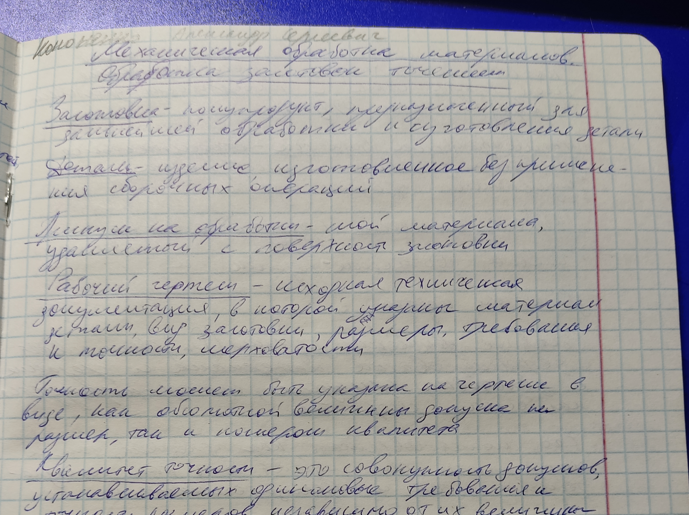 Механическая обработка материалов.
Обработка заготовок точением
Заготовка - полупродукт, предназначенный для
дальнейшей обработки и изготовления детали
Деталь - изделие, изготовленное без примене-
ния сборочных операций
Припуск на обработку - слой материала,
удаляемый с поверхности заготовки
Рабочий чертеж - исходная техническая
документация, в которой указаны материал
детали, вид заготовки, размеры, требования
к точности, шероховатости
Точность может быть указана на чертеже в
виде, как абсолютной величины допуска на
размер, так и номером квалитета
Квалитет точности - это совокупность допусков,
устанавливаемых одинаковые требования к
размеров независимо от их величины